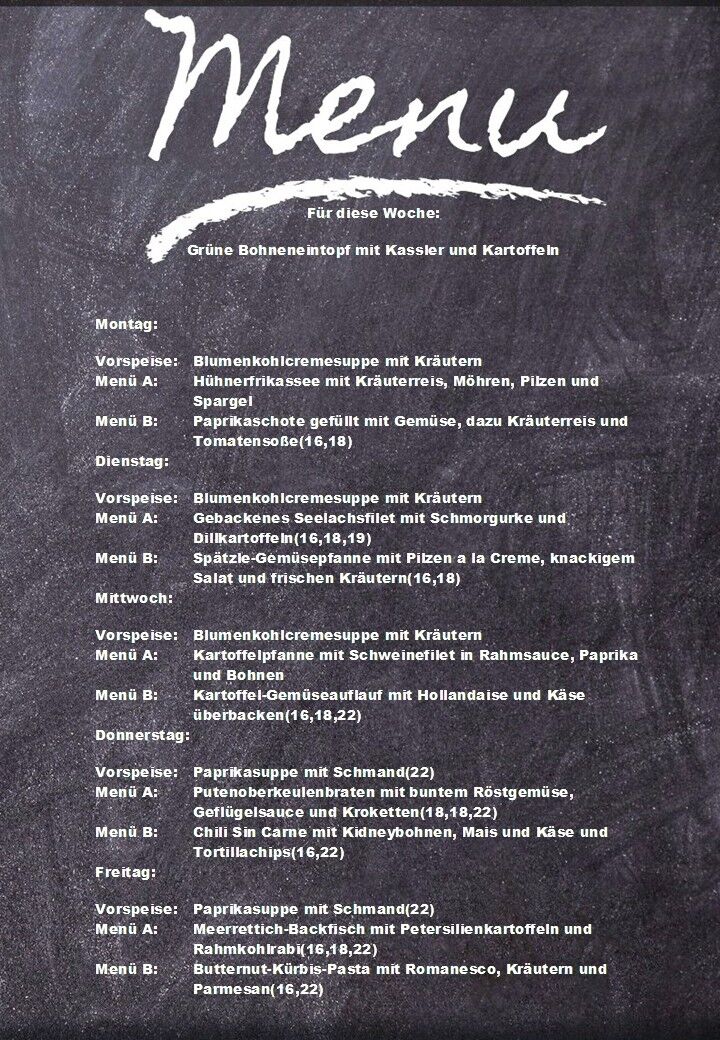 Menu
Für diese Woche:
Grüne Bohneneintopf mit Kassler und Kartoffeln
Montag:
Vorspeise: Blumenkohlcremesuppe mit Kräutern
Menü A: Hühnerfrikassee mit Kräuterreis, Möhren, Pilzen und
Spargel
Menü B: Paprikaschote gefüllt mit Gemüse, dazu Kräuterreis und
Tomatensoße(16,18)
Dienstag:
Vorspeise: Blumenkohlcremesuppe mit Kräutern
Menü A: Gebackenes Seelachsfilet mit Schmorgurke und
Dillkartoffeln(16,18,19)
Menü B: Spätzle-Gemüsepfanne mit Pilzen a la Creme, knackigem
Salat und frischen Kräutern(16,18)
Mittwoch:
Vorspeise: Blumenkohlcremesuppe mit Kräutern
Menü A: Kartoffelpfanne mit Schweinefilet in Rahmsauce, Paprika
und Bohnen
Menü B: Kartoffel-Gemüseauflauf mit Hollandaise und Käse
überbacken(16,18,22)
Donnerstag:
Vorspeise: Paprikasuppe mit Schmand(22)
Menü A: Putenoberkeulenbraten mit buntem Röstgemüse,
Geflügelsauce und Kroketten(18,18,22)
Menü B: Chili Sin Carne mit Kidneybohnen, Mais und Käse und
Tortillachips(16,22)
Freitag:
Vorspeise: Paprikasuppe mit Schmand(22)
Menü A: Meerrettich-Backfisch mit Petersilienkartoffeln und
Rahmkohlrabi(16,18,22)
Menü B: Butternut-Kürbis-Pasta mit Romanesco, Kräutern und
Parmesan(16,22)